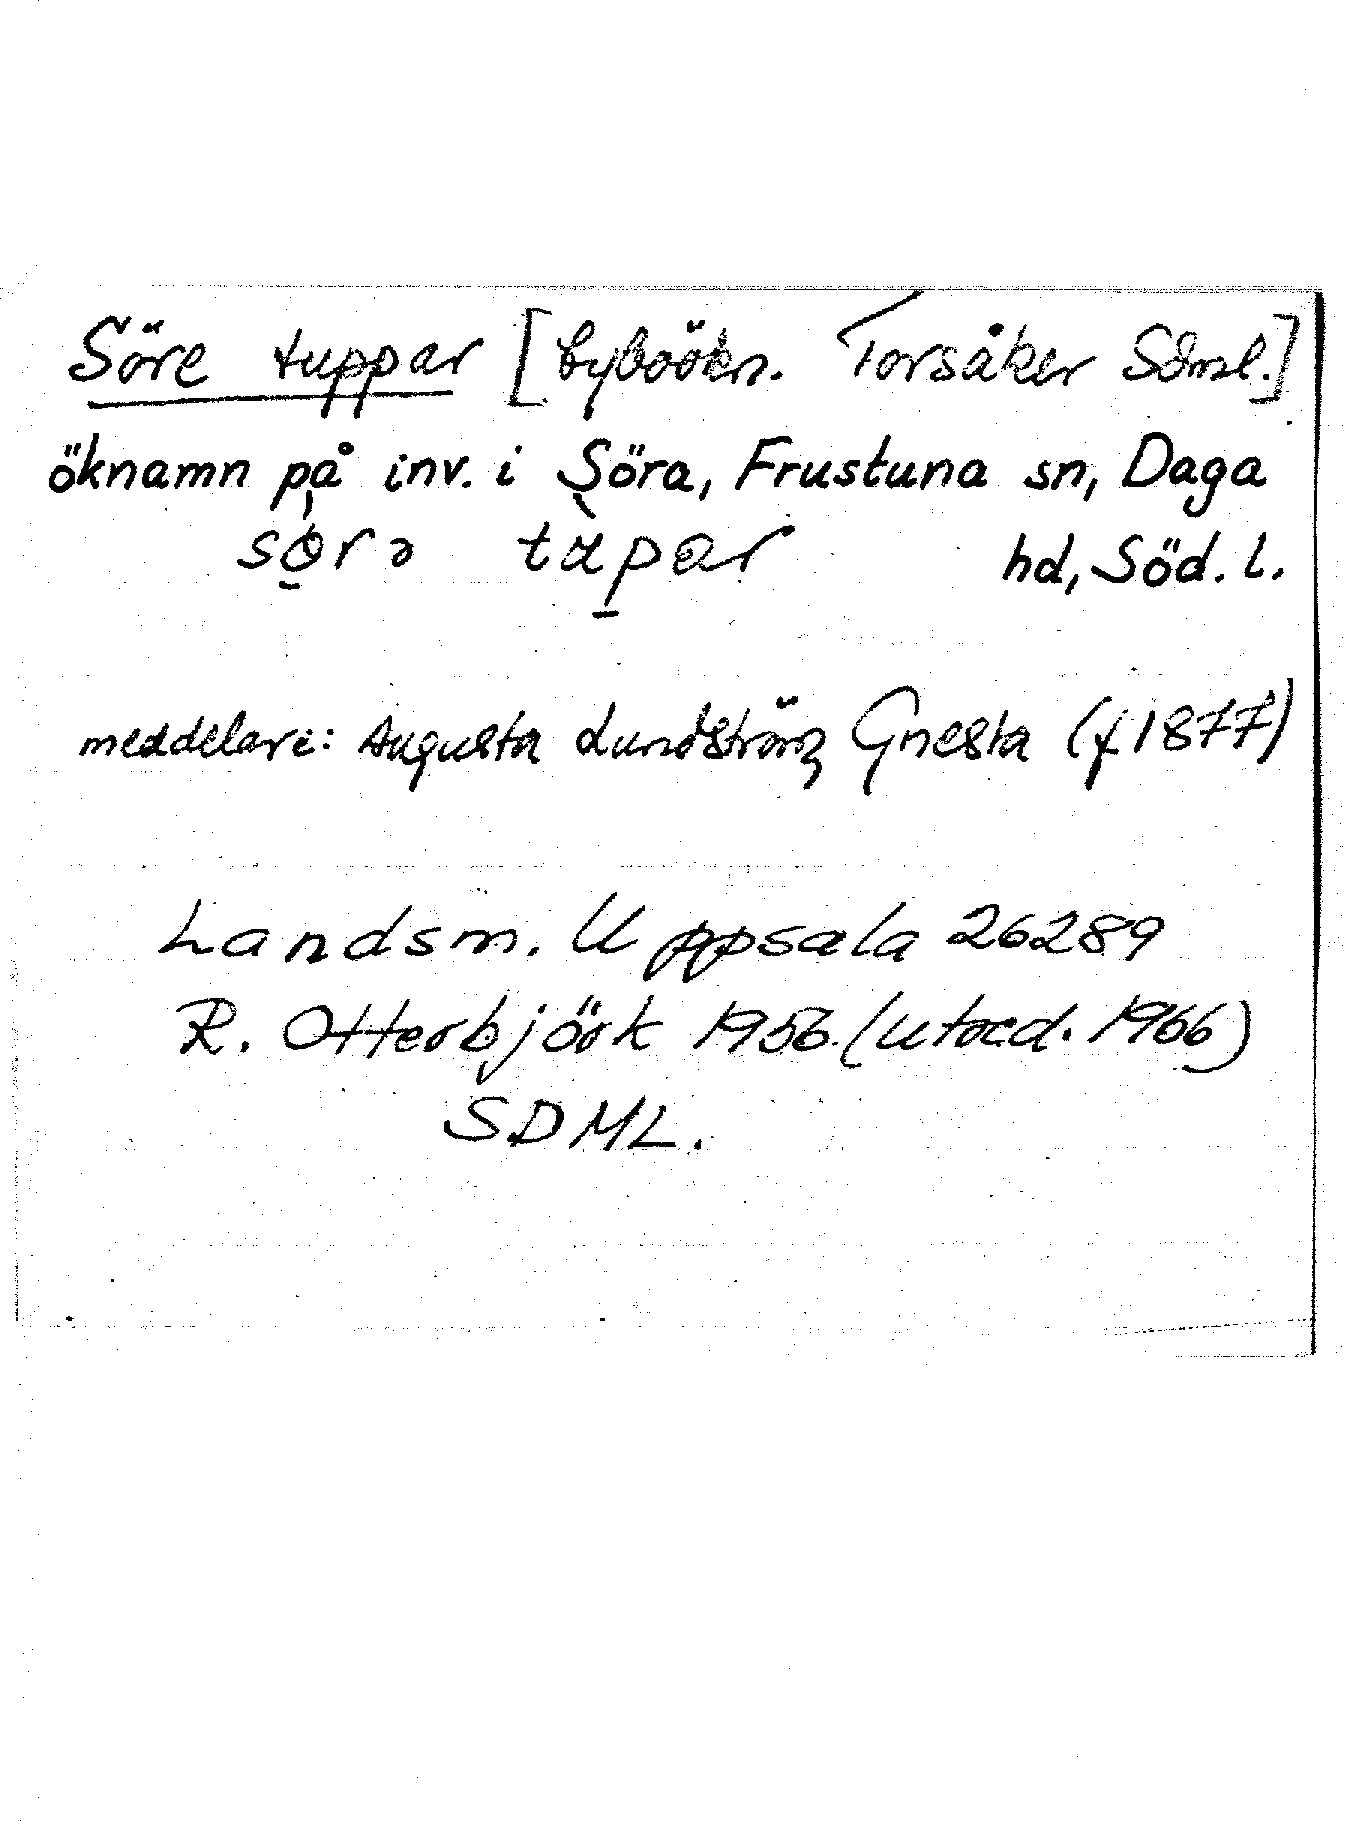 Söre tuppar [byboökn. Torsåker Sdml.]
öknamn på inv. i Söra, Frustuna sn, Daga
sörə tupar hd, Söd. l.
meddelare: Augusta Lundström, Gnesta (f 1877)
Landsm. Uppsala 26289
R. Otterbjörk 1956 (utred. 1966)
SDML.